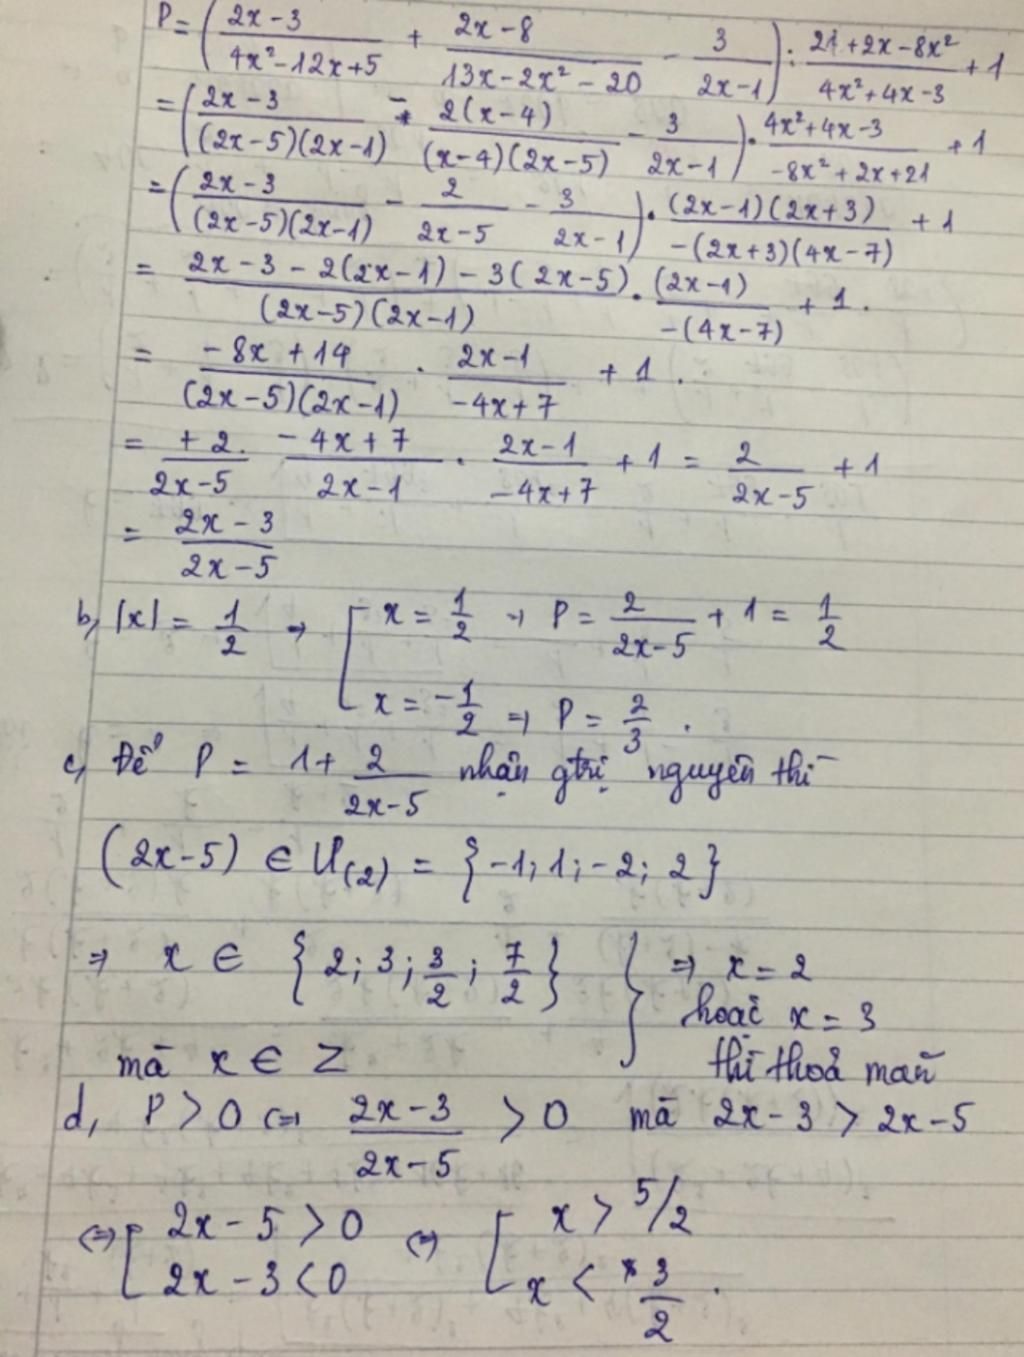 P = ( (2x-3)/(4x²-12x+5) + (2x-8)/(13x-2x²-20) - 3/(2x-1) ) : (21+2x-8x²)/(4x²+4x-3) + 1
= ( (2x-3)/((2x-5)(2x-1)) - 2(x-4)/((x-4)(2x-5)) - 3/(2x-1) ) . (4x²+4x-3)/(-8x²+2x+21) + 1
= ( (2x-3)/((2x-5)(2x-1)) - 2/(2x-5) - 3/(2x-1) ) . ((2x-1)(2x+3))/(-(2x+3)(4x-7)) + 1
= (2x-3-2(2x-1)-3(2x-5))/((2x-5)(2x-1)) . (2x-1)/(-(4x-7)) + 1.
= (-8x+14)/((2x-5)(2x-1)) . (2x-1)/(-4x+7) + 1.
= (+2.)/(2x-5) (-4x+7)/(2x-1) . (2x-1)/(-4x+7) + 1 = 2/(2x-5) + 1
= (2x-3)/(2x-5)
b, |x| = 1/2 → [ x = 1/2 → P = 2/(2x-5) + 1 = 1/2
x = -1/2 ⇒ P = 2/3 .
c, Để P = 1 + 2/(2x-5) nhận gtrị nguyên thì
(2x-5) ∈ Ư(2) = {-1; 1; -2; 2}
⇒ x ∈ {2; 3; 3/2; 7/2} } ⇒ x = 2
hoặc x = 3
mà x ∈ Z thì thoả mãn
d, P > 0 ⇔ (2x-3)/(2x-5) > 0 mà 2x-3 > 2x-5
⇔ [ 2x-5 > 0 ⇔ [ x > 5/2
2x-3 < 0 x < 3/2 .